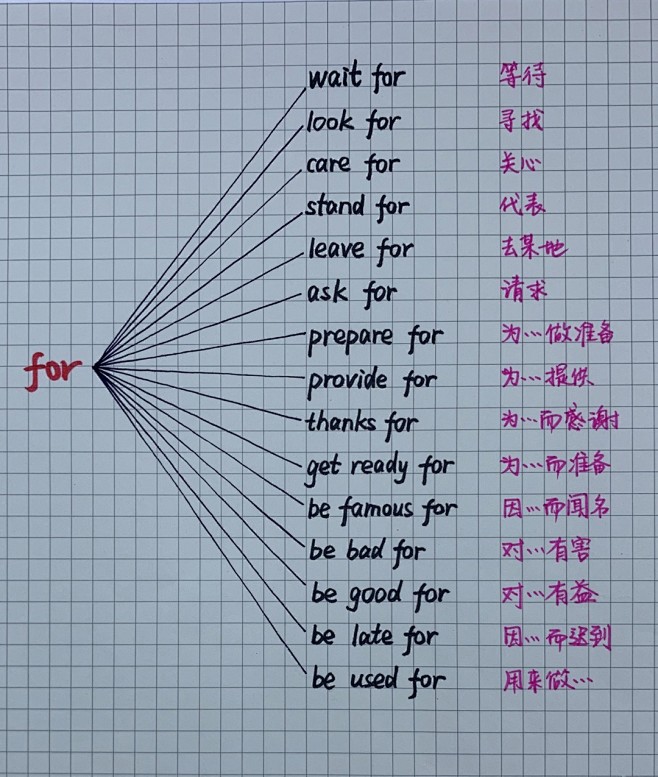 wait for 等待
look for 寻找
care for 关心
stand for 代表
leave for 去某地
ask for 请求
prepare for 为…做准备
for
provide for 为…提供
thanks for 为…而感谢
get ready for 为…而准备
be famous for 因…而闻名
be bad for 对…有害
be good for 对…有益
be late for 因…而迟到
be used for 用来做…